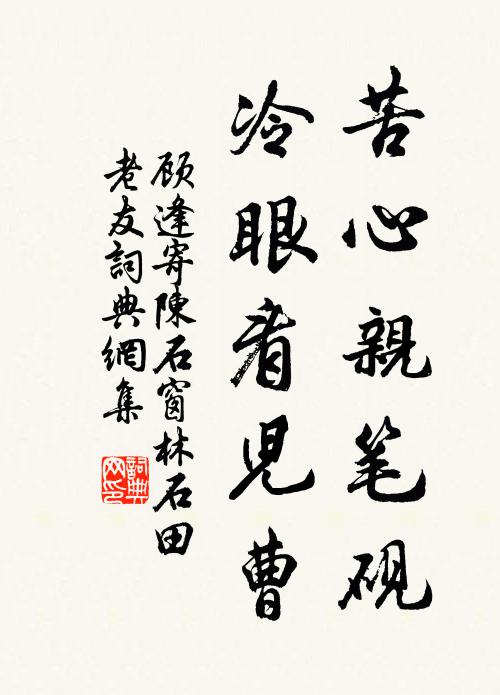 苦心親笔硯
冷眼看児曹
顾逢寄陳石窗林石田
老友詞典網集
詞典网印